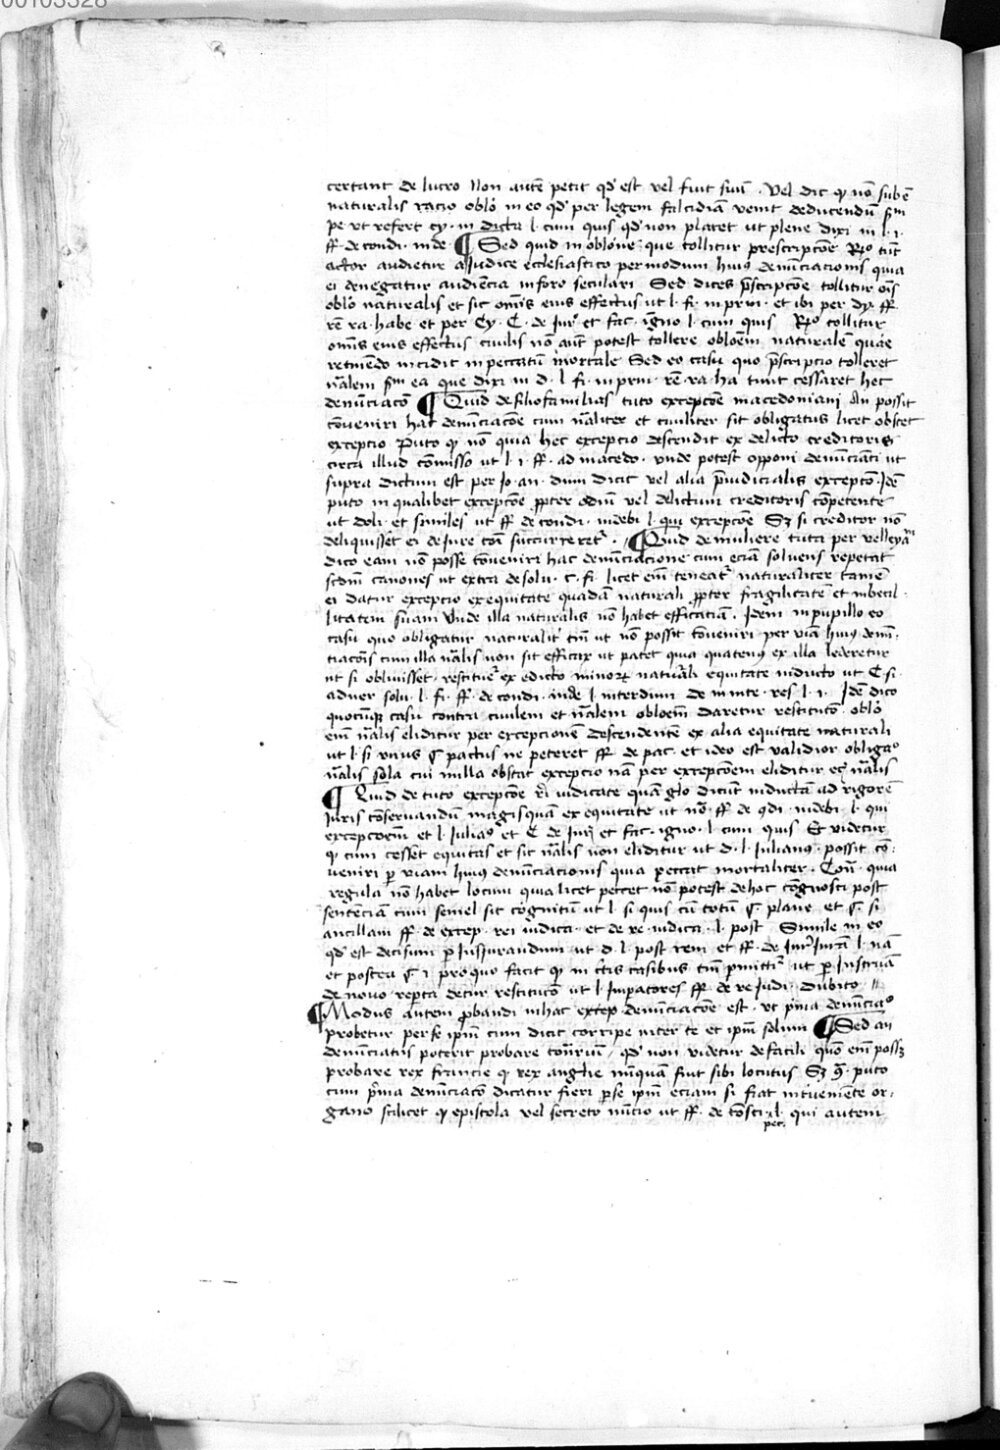 00103328
certant de lucro Non autē petit qd' est vel fuit suū · Vel dic qͥ nō subē
naturalis racio oblō in eo qd' per legem falcidiā venit deducendū sm̄
pe vt refert cy · in dicta l · cum quis qd' non placet ut plene dixi in l · i ·
ff · de condi · inde · ¶ Sed quid in oblōne que tollitur prescriptōe Rͦ tūc
actor audietur a Judice ecclesiastico per modum huiꝰ denūciacionis quia
ei denegatur audiēcia in foro seculari Sed dices p̄scriptōe tollitur oīs
oblō naturalis et sic omīs eius effectus ut l · fi · in prin · et ibi per dy · ff ·
rē ra · habe et per Cy · C · de Jur' et fac · igno l · cum quis Rͦ tollitur
omīs eius effectus civilis nō aūt potest tollere obloēm naturalē quāe
retinēdo incidit in peccatū mortale Sed eo casu quo p̄scripcio tolleret
nālem sm̄ ea que dixi in d · l · fi · in prin · rē · ra · ha tunc cessaret hec
denūciacō ¶ Quid de filiofamilias tuto excepcōe macedoniani An possit
cōveniri hac denūciacōe cum nāliter et civiliter sit obligatus licet obstet
excepcio Puto qͥ nō quia hec excepcio descendit ex delicto creditoris
circa illud cōmisso ut l · i · ff · ad macedo · vnde potest opponi denūciāti ut
supra dictum est per Jo · an · dum dicit vel alia p̄iudicialis excepcō · Idē
puto in qualibet excepcōe ꝓpter odiū vel delictum creditoris cōpetente
ut doli · et similes ut ff · de condi · indebi l · qui excepcōe Sꝫ si creditor nō
deliquisset ei de Jure cōi succurreretᵣ · ¶ Quid de muliere tuta per velleyaⁿ
dico eam nō posse cōveniri hac denūciacione cum eciā solvens repetat
scdm canones ut extra de solu · c · fi · licet eīm teneatᵣ naturaliter tamē
ei datur excepcio ex equitate quadā naturali ꝓpter fragilitatē et inbecil ·
litatem suam Unde illa naturalis nō habet efficaciā · Idem in pupillo eo
casu quo obligatur naturalit' tn̄ ut nō possit cōveniri per viā huiꝰ denū ·
ciacōis cum illa nālis non sit efficax ut patet quia quatenꝰ ex illa lederetur
ut si obluisset · restituet' ex edicto minorꝝ naturāli equitate inducto ut C si ·
adver solu · l · fi · ff · de condi · inde l · interdum de in inte · res · l · i · Idē dico
quocūqꝫ casu contra civilem et nālem obloēm daretur restitucō · oblō
eīm nālis eliditur per excepcionē descendentē ex alia equitate naturali
ut l · si vnus ¶ pactus ne peteret ff · de pac · et ideo est validior obligaͦ
nālis sola cui nulla obstat excepcio nā per excepcōem eliditur eꝫ nālis
¶ Quid de tuto excepcōe ri iudicate quam glo dicūt inductā ad rigorē
Juris cōservandū magis quam ex equitate ut nōͦ ff · de ꝯdi · indebi · l · qui
excepcōem et l · Juliaͦ et C · de Jurͥ et fac · igno · l · cum quis Et videtur
qͥ cum cesset equitas et sic nālis non eliditur ut d · l · Julianus · possit cō ·
veniri ꝑ viam huiꝰ denūciacionis quia peccat mortaliter · Coñ · quia
regula nō habet locum quia licet peccet nō potest de hoc cōgnosci post
sentēciam cum semel sit cōgnitū ut l · si quis cū totū ¶ · plane et ¶ · si
ancillam ff · de excep · rei iudica · et de re iudica · l · post Simile in eo
qd' est decisum ꝑ Jusjurandum ut d · l · post rem et ff · de Jur' Jurā l · nā
et postea ¶ i pro quo facit qͥ in ctīs casibus tn̄ p̄mittiᵣ ut ꝑ Instruā
de novo repta detur restitucō ut l · Imꝑatores ff · de re Judi · dubito ·
¶ Modus autem ꝓbandi in hac excep denūciacōe est · vt p̄ma denūciaͦ
probetur per se ipm̄ cum dicit corripe inter te et ipm̄ solum ¶ Sed an
denūciatus poterit probare cōtr̄ium qd' non videtur de facili quō eīm possꝫ
probare rex francie qͥ rex anglie nūquā fuit sibi locutus Sꝫ ꝯ̄ · puto
cum p̄ma denūciacō dicatur fieri ꝑ se ipm̄ eciam si fiat inteveniēte or ·
gano scilicet qͥ epistola vel secreto nūcio ut ff · de cōsti · l · qui autem
pec ·